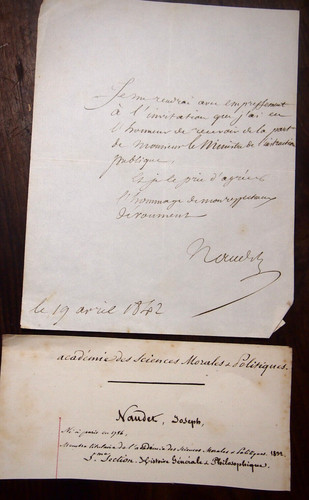 Je me rendrai avec empressement
à l'invitation que j'ai eu
l'honneur de recevoir de la part
de Monsieur le Ministre de l'instruction
publique.
Et je le prie d'agréer
l'hommage de mon respectueux
dévoument
Naudet
le 19 avril 1842
académie des Sciences Morales & Politiques.
Naudet, Joseph,
Né à paris en
Membre titulaire de l'académie des Sciences Morales & Politiques. 1832
Section. Histoire Générale & Philosophique.